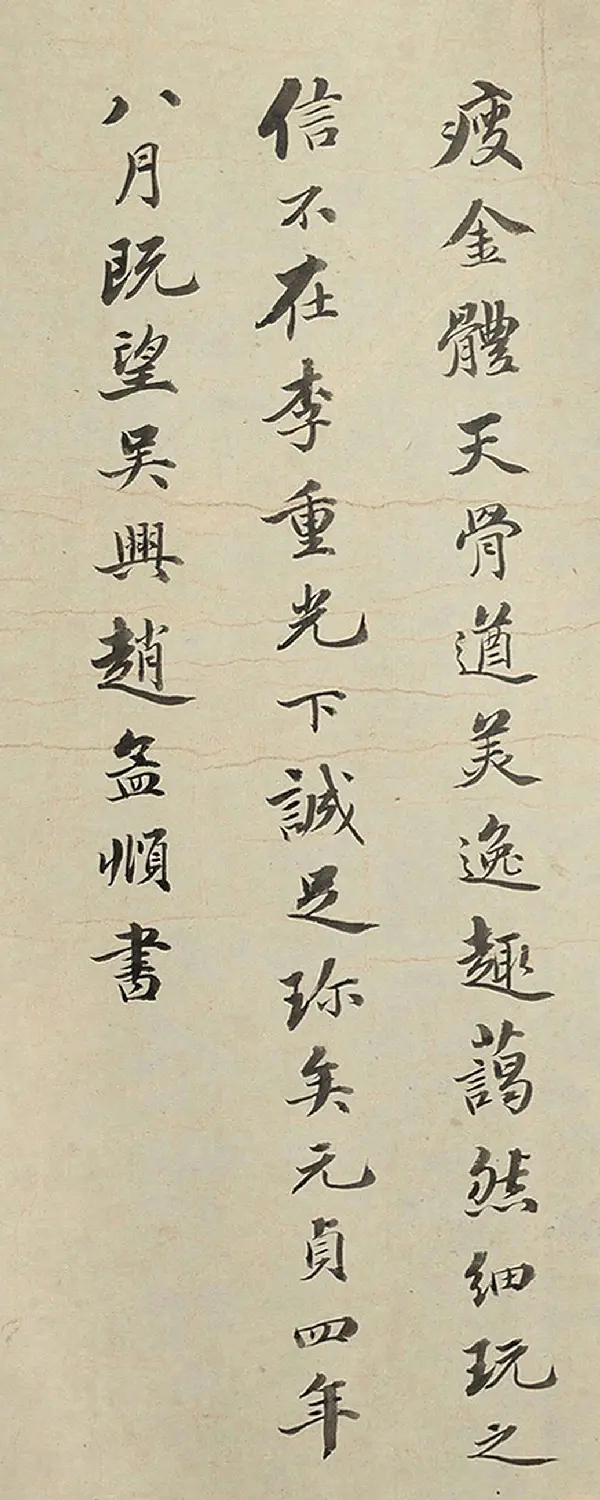 瘦金體天骨遒美逸趣藹然細玩之
信不在李重光下誠足珎矣元貞四年
八月既望吴興趙孟順書